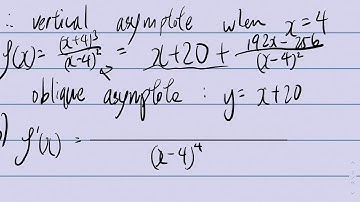 ∴ vertical asymptote when x=4
f(x)= (x+4)³/(x-4)² = x+20 + (192x-256)/(x-4)²
oblique asymptote : y= x+20
) f'(x) = /(x-4)⁴